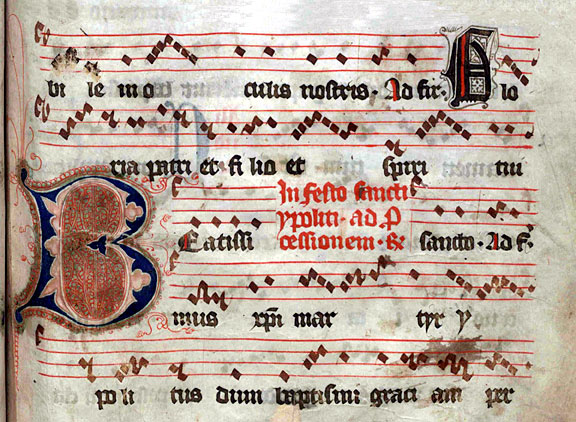 bi le in o culis nostris · Ad fir. Glo
ria patri et fi lio et spiri tui
In festo sancti
ypoliti · ad p̄
Beatissi cessionem · R̄ sancto · Ad f.
mus xp̄i mar tyr y
poli tus dum baptismi graci am per